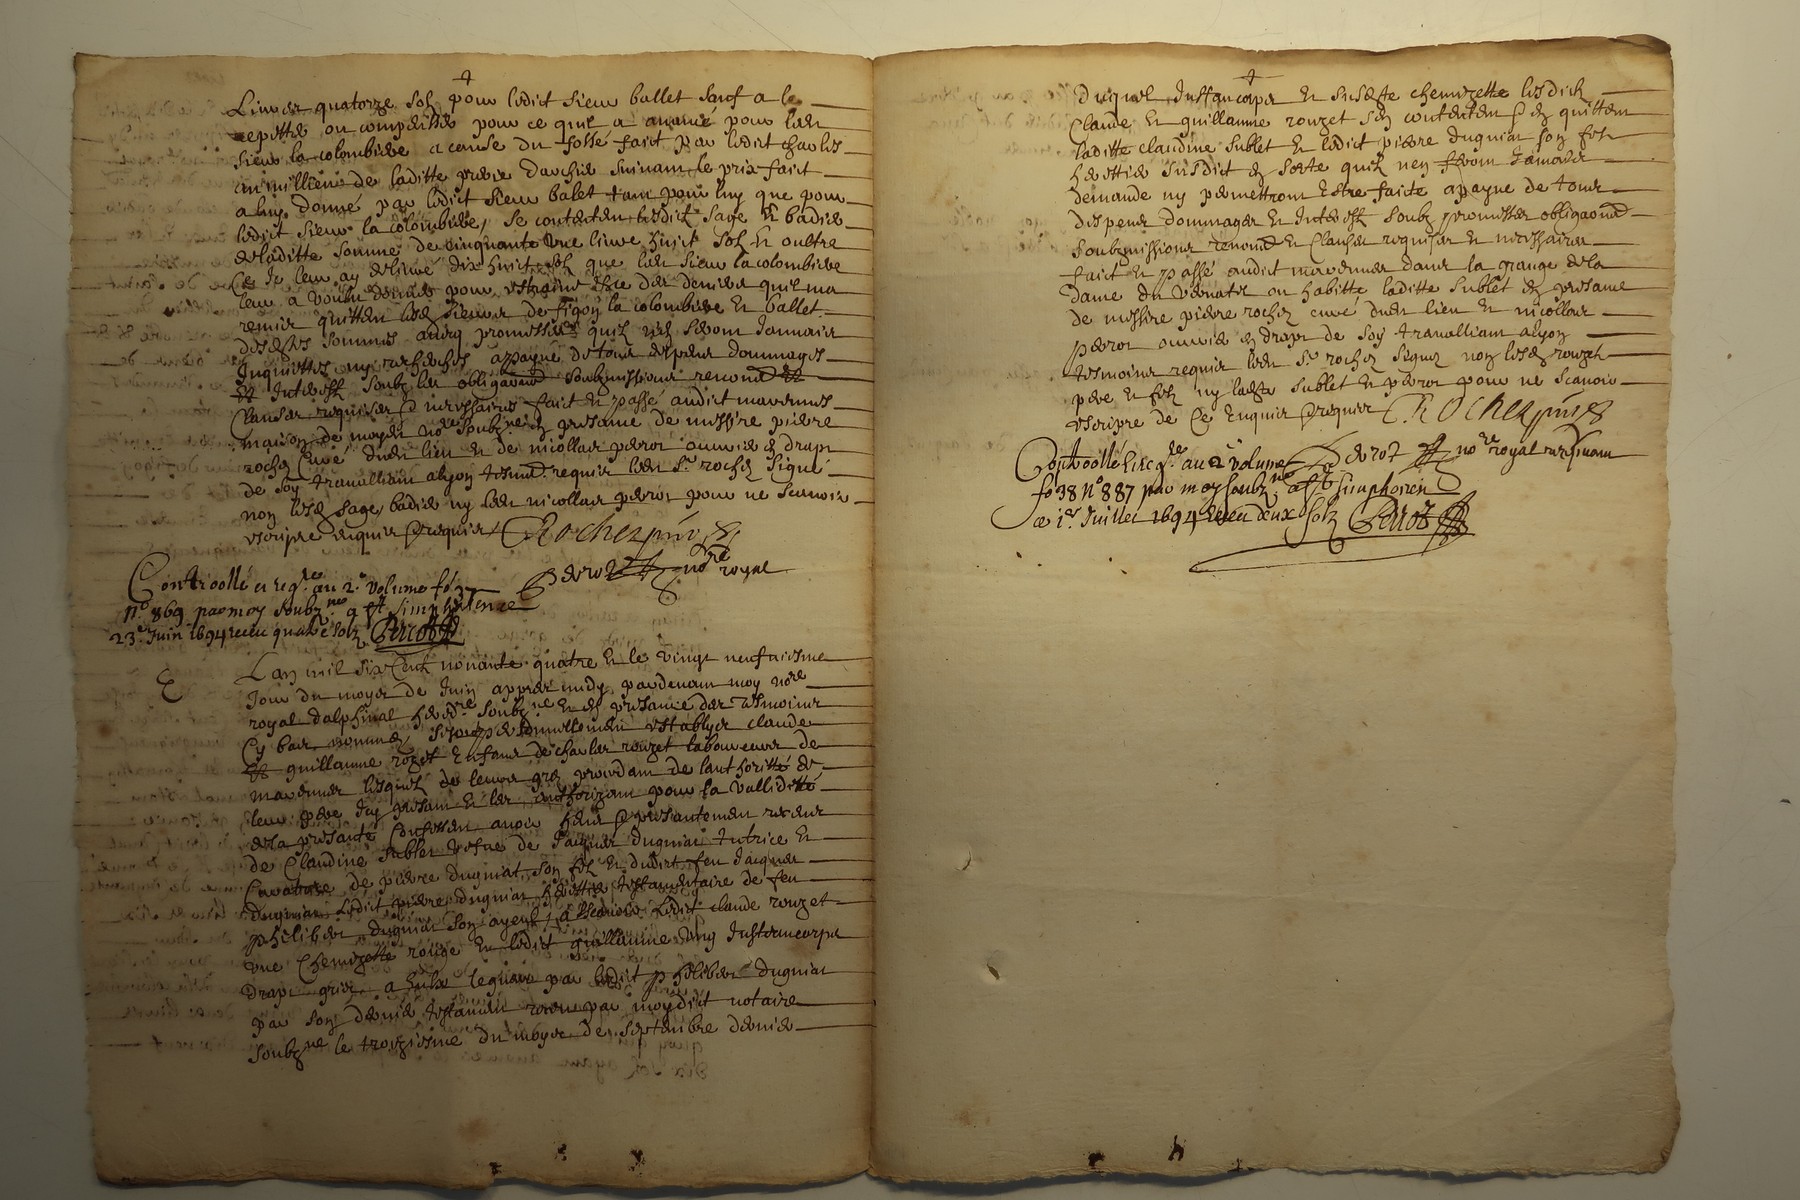 Livres quatorze solz pour ledict sieur ballet sauf a le
repetter ou compenser pour ce quil a avancé pour led
sieur la colombiere a cause du fossé faict par ledict charles
au millieu de laditte piece suivant le prix faict
a luy donné par ledict sieur balet tant pour luy que pour
ledict sieur la colombiere, se contentent lesdict sage et badier
de laditte somme de cinquante une livre huict solz et oultre
Ce je leur ay delivré dix huict solz que led sieur la colombiere
leur a voulu donner pour estraine des deniers quil ma
remis quittent lesd sieurs de figon la colombiere et ballet
desdittes sommes avec promesse quilz nen seront jammais
Inquiettes ny recherches a payne de tous despens dommages
et Interestz soubz les obligaons soubzmissions renond et
Clauses requises et necessaires faict et passé audict marennes
maison de moyd nore soubzne en presance de messire pierre
rochez Curé dud lieu et de nicollas perrot ouvrier en drapt
de soy travalliant alyon tesmd requis led sr rochez signé
non lesd sage badier ny led nicollas perrot pour ne scavoir
escripre enquis et requis Rochez pnt
Perrot nore royal
Controollé et regre au 2e volume fo 37
no 869 par moy soubzne a st Simphorien ce
23e Juin 1694 receu quatre solz Perrot
Lan mil six Centz nonante quatre et le vingt neufviesme
Jour du moys de Juin appres midy pardevant moy nore
royal dalphinal heredre soubzne et en presance des tesmoins
Cy bas nommes, personnellement establys claude
et guillaume rozet enfans de charles rouzet laboureur de
marennes lesquelz de leurs grez procedant de lauthoritté de
leur pere Icy presant et les authorizant pour la valliditté
de la presante Confessent avoir heu et presantement receus
de Claudine sublet vefve de Jacques dugniat tutrice et
Curatrice de pierre dugniat son filz et dudict feu Jacques
dugniat ledict pierre dugniat herittier testamentaire de feu
philiber dugniat son ayeul, a scavoir ledict claude rouzet
une Chemizette rouge et ledict guillaume ung Justaucorps
drapt gris a eulx legues par ledict philiber dugniat
par son dernier testament receu par moydict notaire
soubzne le troiziesme du moys de septembre dernier
duquel Justaucorps et susditte chemizette lesdictz
Claude et guillaume rouzet sen contentent et en quittent
laditte claudine sublet et ledict pierre dugniat son filz
herittier susdict en sorte quilz nen feront jamais
demande ny permettront estre faite a payne de tous
despens dommages et Interestz soubz promesses obligaons
soubzmissions renond et Clauses requises et necessaires
faict et passé audict marennes dans la grange de la
dame du vernatel ou habitte laditte sublet en presance
de messire pierre rochez curé dud lieu et nicollas
perrot ouvrier en drapt de soy travalliant alyon
tesmoins requis led sr rochez signez non lesd rouzet
pere et filz ny laditte sublet et perrot pour ne scavoir
escripre de Ce Enquis et requis Rochez pnt
Perrot nore royal recepvant
Controollé et regre au 2e volume
fo 38 no 887 par moy soubzne a st Simphorien
ce 1er Juillet 1694 Receu deux solz Perrot